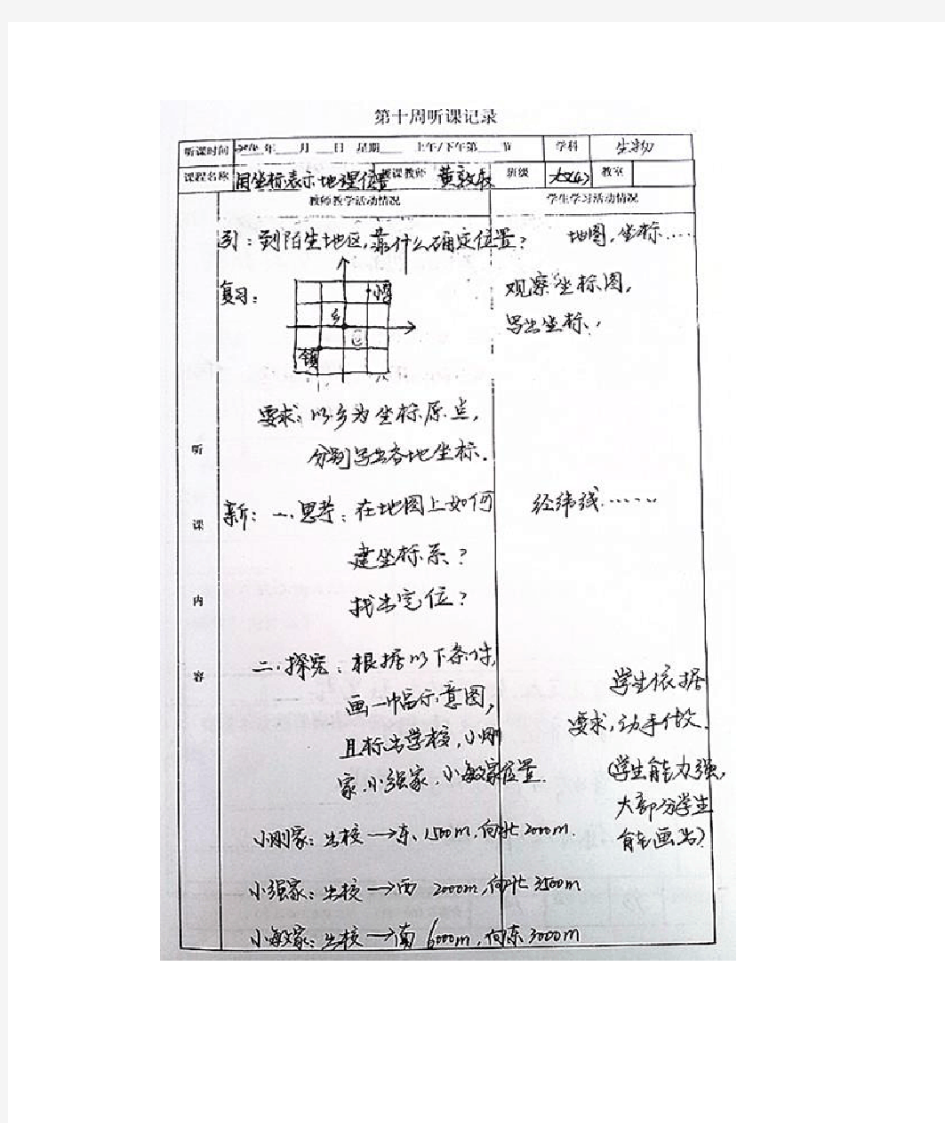 第十周听课记录
听课时间 年 月 日 星期 上午/下午第 节 学科 生物
课程名称 用坐标表示地理位置 授课教师 黄 班级 教室
教师教学活动情况 学生学习活动情况
引：到陌生地区，靠什么确定位置？ 地图，坐标……
复习： 小学 乡 镇 观察坐标图，
写出坐标.
要求：以乡为坐标原点，
分别写出各地坐标.
听课内容
新：一.思考：在地图上如何 经纬线……
建坐标系？
找出定位？
二.探究：根据以下条件， 学生依据
画一幅示意图， 要求，动手做.
且标出学校，小刚 （学生能力强，
家.小强家.小敏家位置. 大部分学生
小刚家：出校→东、1500m，向北2000m. 能画出）
小强家：出校→西 2000m，向北3500m
小敏家：出校→南 6000m，向东3000m